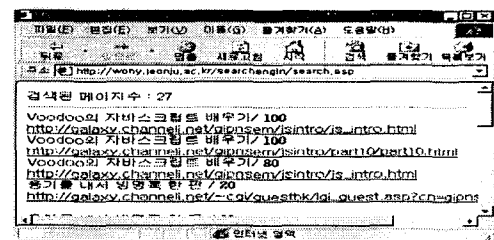 파일(F) 편집(E) 보기(V) 이동(G) 즐겨찾기(A) 도움말(H)
뒤로 멈춤 새로고침 시작 검색 즐겨찾기 목록보기
주소 http://wony.jeonju.ac.kr/searchengin/search.asp
검색된 페이지수 : 27
Voodoo의 자바스크립트 배우기/ 100
http://galaxy.channeli.net/gipnsem/jsintro/js_intro.html
Voodoo의 자바스크립트 배우기/ 100
http://galaxy.channeli.net/gipnsem/jsintro/part10/part10.html
Voodoo의 자바스크립트 배우기/ 80
http://galaxy.channeli.net/gipnsem/jsintro/js_intro.html
용기를 내서 방명록 한 판 / 20
http://galaxy.channeli.net/~cgi/guestbk/lgi_guest.asp?cn=gipns
인터넷 영역